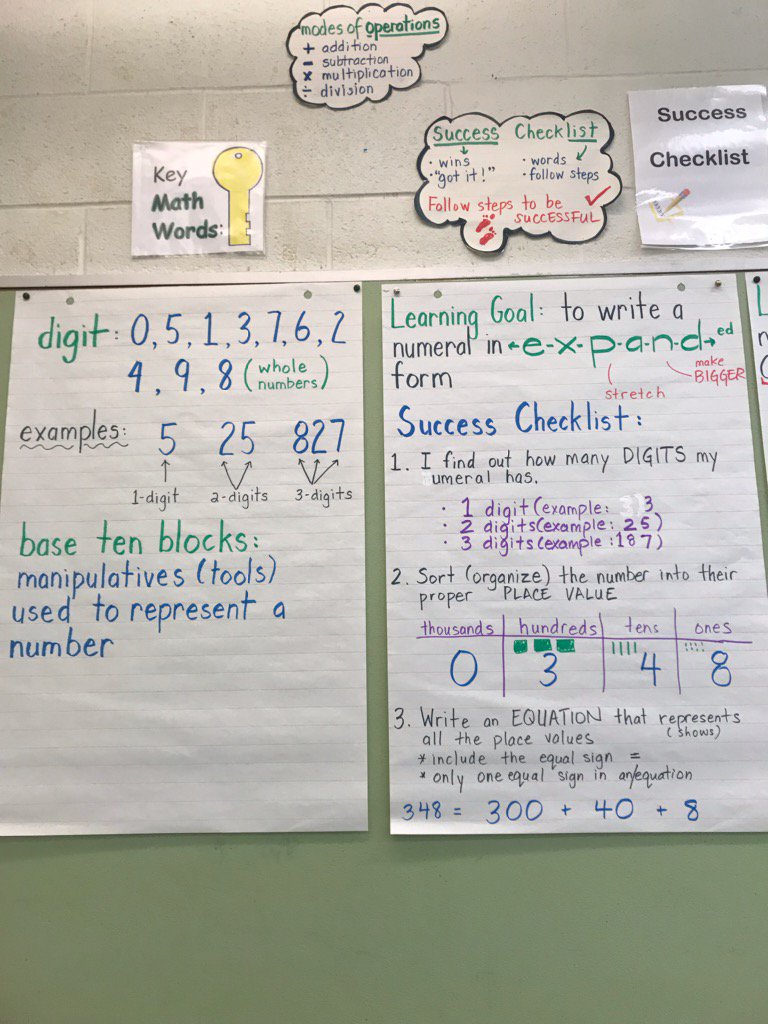 modes of operations
+ addition
- subtraction
x multiplication
÷ division
Success Checklist
· wins
· "got it!"
· words
· follow steps
Follow steps to be
SUCCESSFUL
Success
Checklist
Key
Math
Words:
digit: 0, 5, 1, 3, 7, 6, 2
4, 9, 8 (whole
numbers)
examples: 5 25 827
1-digit 2-digits 3-digits
base ten blocks:
manipulatives (tools)
used to represent a
number
Learning Goal: to write a
numeral in e-x-p-a-n-d ed
form
stretch
make
BIGGER
Success Checklist:
1. I find out how many DIGITS my
umeral has.
· 1 digit (example: 3
· 2 digits (example: 25)
· 3 digits (example :187)
2. Sort (organize) the number into their
proper PLACE VALUE
thousands hundreds tens ones
0 3 4 8
3. Write an EQUATION that represents
(shows)
all the place values
* include the equal sign =
* only one equal sign in an equation
348 = 300 + 40 + 8